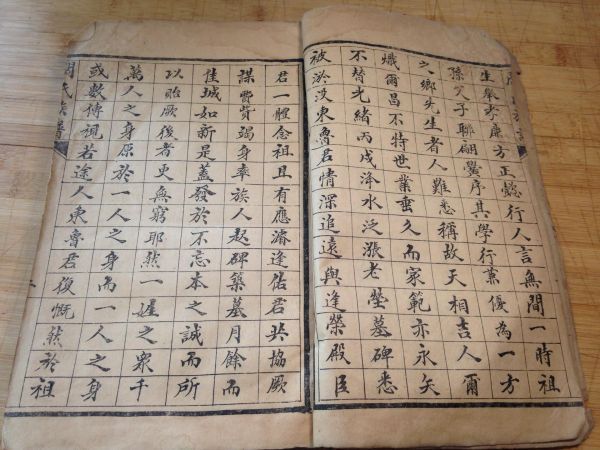 生舉孝廉方正懿行人言無間一時祖
孫父子聯翩黌序其學行兼優為一方
之鄉先生者人難悉稱故天相吉人爾
熾爾昌不特世業垂久而家範亦永矣
不替光緒丙戌洚水泛漲老塋墓碑悉
被淤沒東魯君情深追遠與逢榮殿臣
君一體念祖且有應濬逢佑君共協厥
謀費貲竭身率族人起碑築墓月餘而
佳城如新是蓋發於不忘本之誠而所
以貽厥後者更無窮耶然一姓之衆千
萬人之身原於一人之身而一人之身
或數傳視若途人東魯君復慨然於祖
周氏族譜